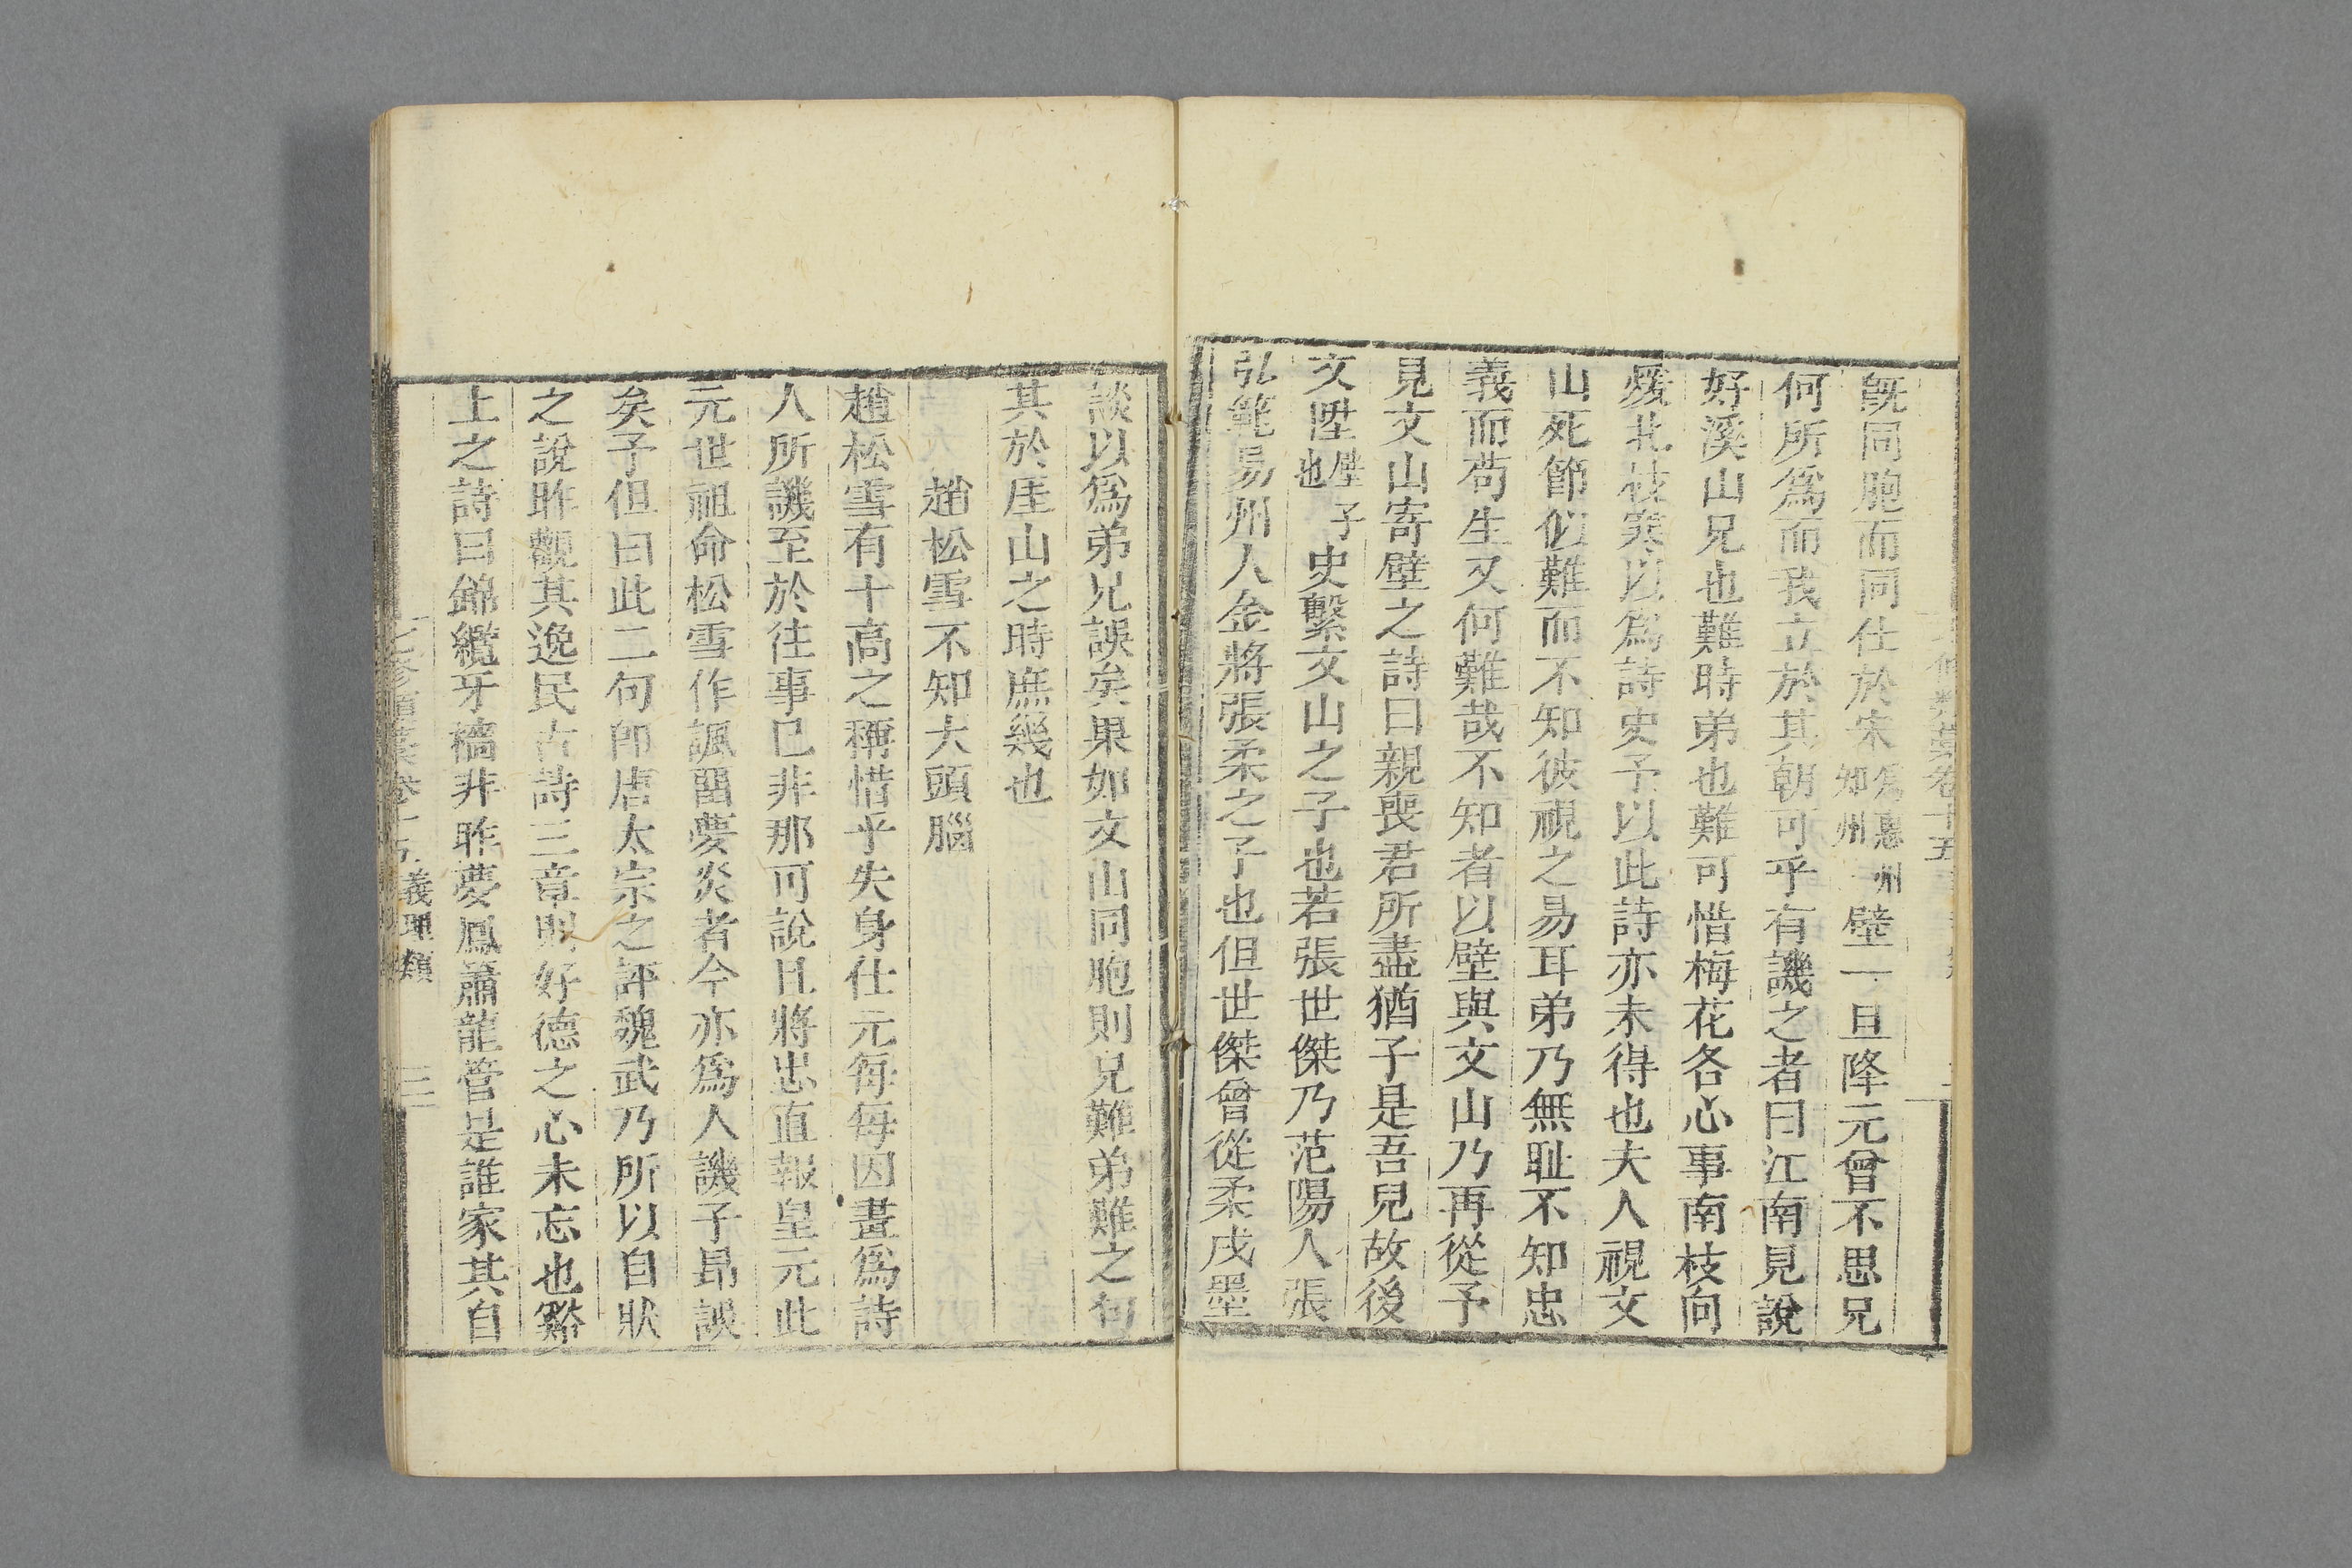 旣同胞而同仕於宋爲惠州知州璧一旦降元曾不思兄
何所爲而我立於其朝可乎有譏之者曰江南見說
好溪山兄也難時弟也難可惜梅花各心事南枝向
煖北枝寒以爲詩史予以此詩亦未得也夫人視文
山死節似難而不知彼視之易耳弟乃無耻不知忠
義而苟生又何難哉不知者以璧與文山乃再從予
見文山寄璧之詩曰親喪君所盡猶子是吾兒故後
文陞璧子也史繫文山之子也若張世傑乃范陽人張
弘範易州人金將張柔之子也但世傑曾從柔戍
談以爲弟兄誤矣果如文山同胞則兄難弟難之句
其於厓山之時庶幾也
趙松雪不知大頭腦
趙松雪有十高之稱惜乎失身仕元每每因畫爲詩
人所譏至於往事已非那可說且將忠直報皇元此
元世祖命松雪作諷畱夢炎者今亦爲人譏子昂誤
矣予但曰此二句卽唐太宗之評魏武乃所以自狀
之說昨觀其逸民古詩三章則好德之心未忘也
上之詩曰錦纜牙檣非昨夢鳳簫龍管是誰家其自
七修類藁卷十五 義理類 三